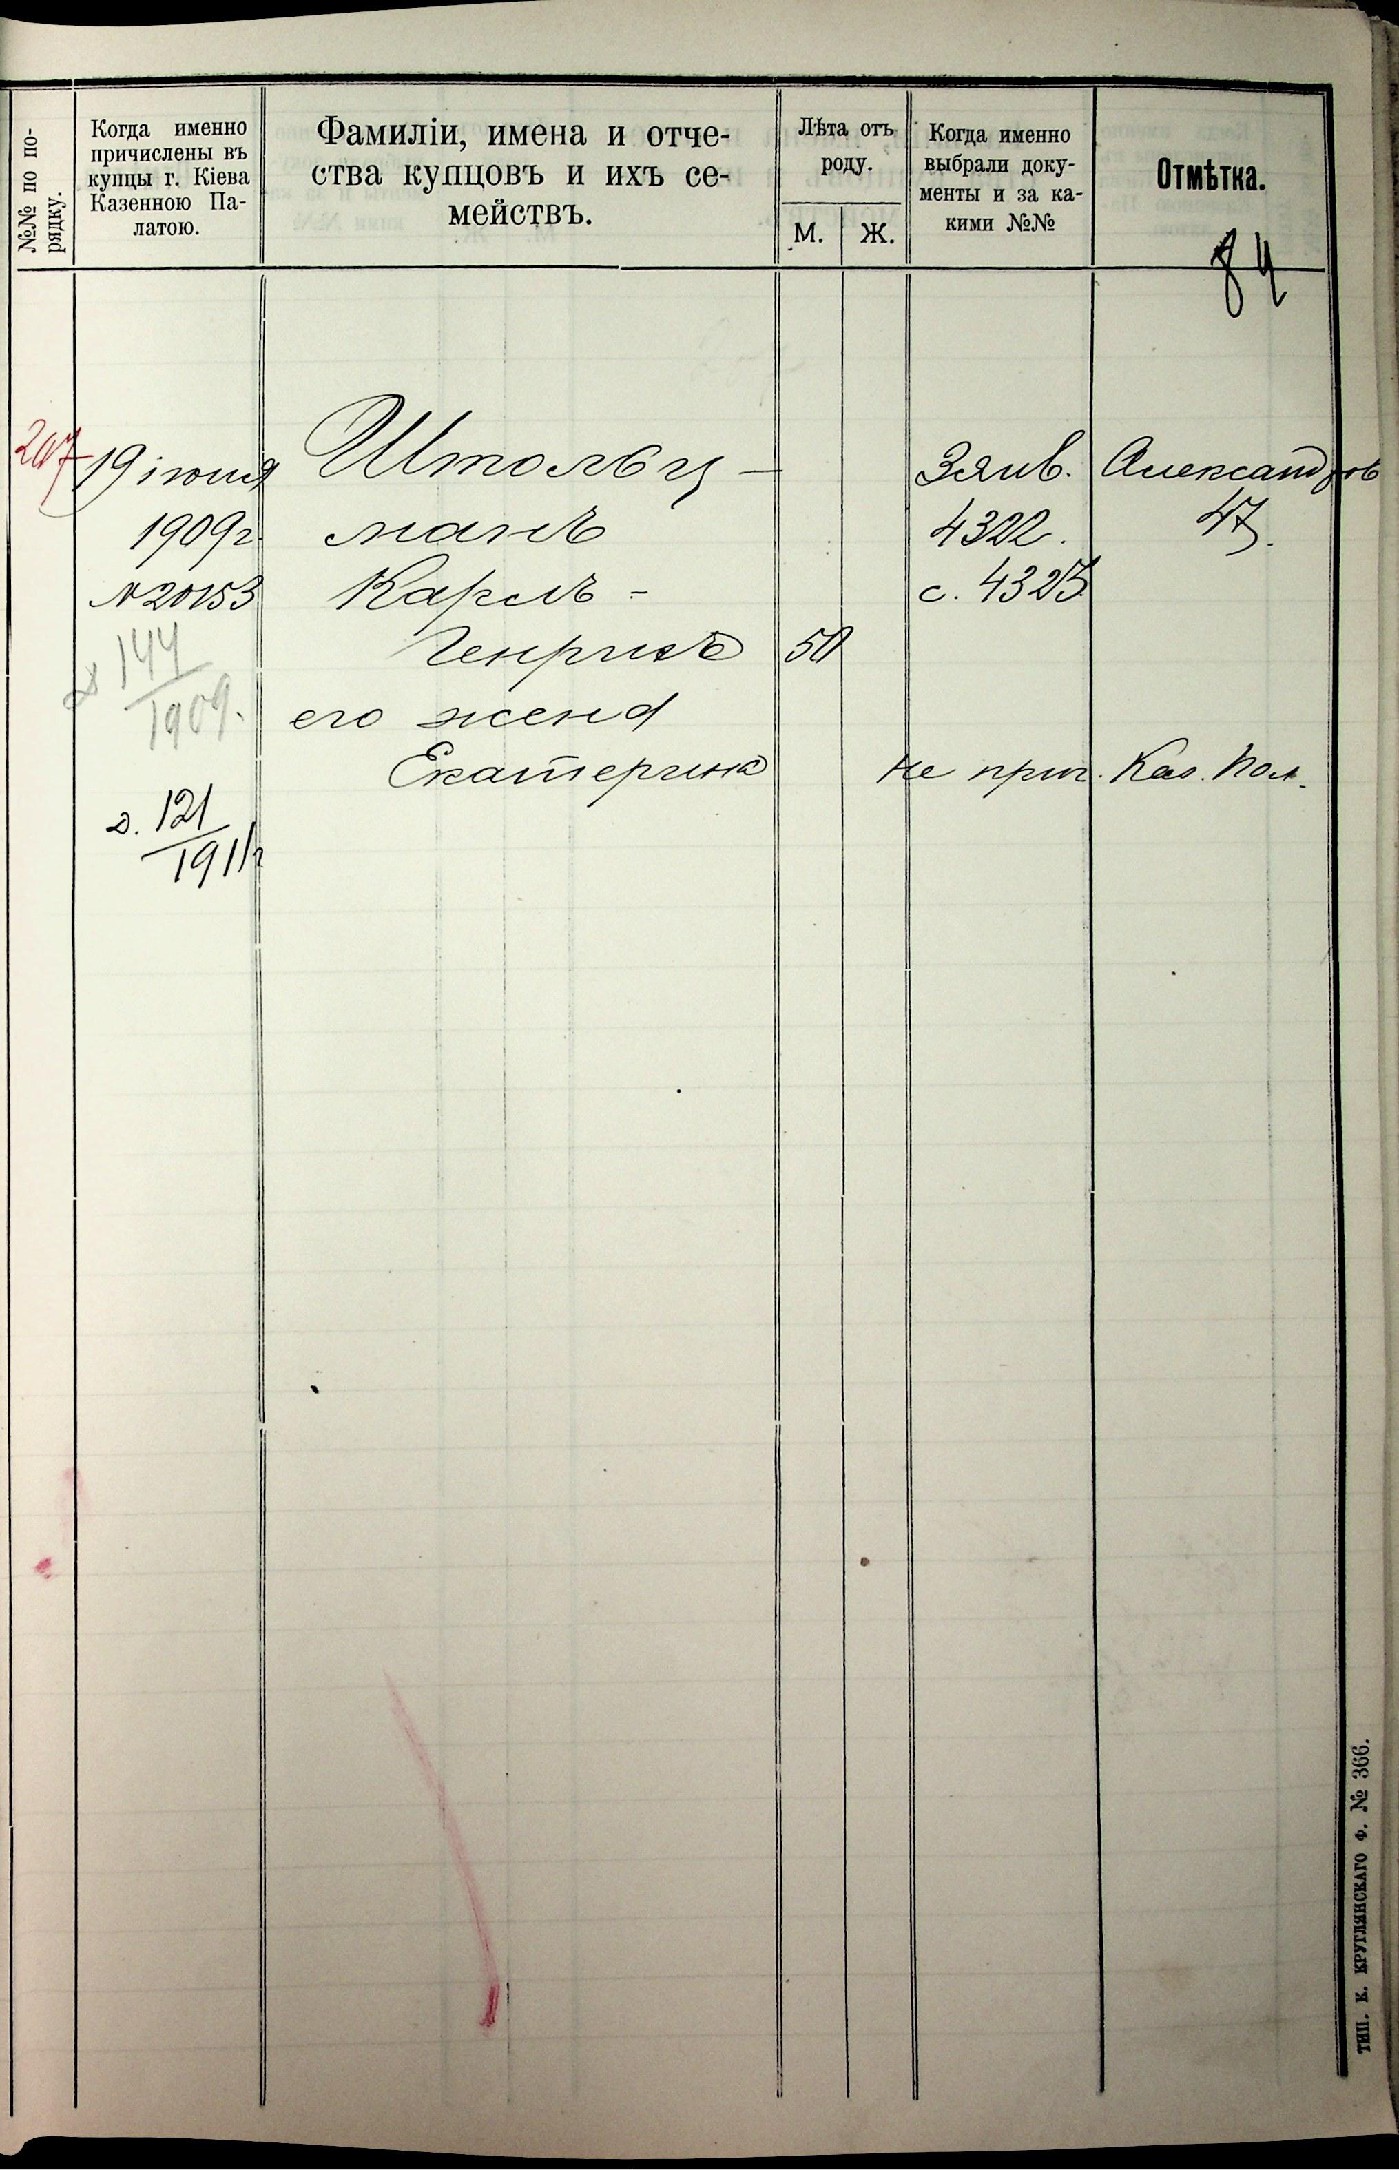 №№ по по-
рядку.
Когда именно
причислены въ
купцы г. Кіева
Казенною Па-
латою.
Фамиліи, имена и отче-
ства купцовъ и ихъ се-
мействъ.
Лѣта отъ
роду.
М.
Ж.
Когда именно
выбрали доку-
менты и за ка-
кими №№
Отмѣтка.
84
207
19 іюня
1909г.
№20153
144
1909.
д. 121
1911г
Штольц-
манъ
Карлъ-
Генрихъ
его жена
Екатерина
50
Заяв.
4322.
с. 4323
Александров
47.
не прич. Каз. Пал.
ТИП. К. КРУГЛЯНСКАГО Ф. № 366.